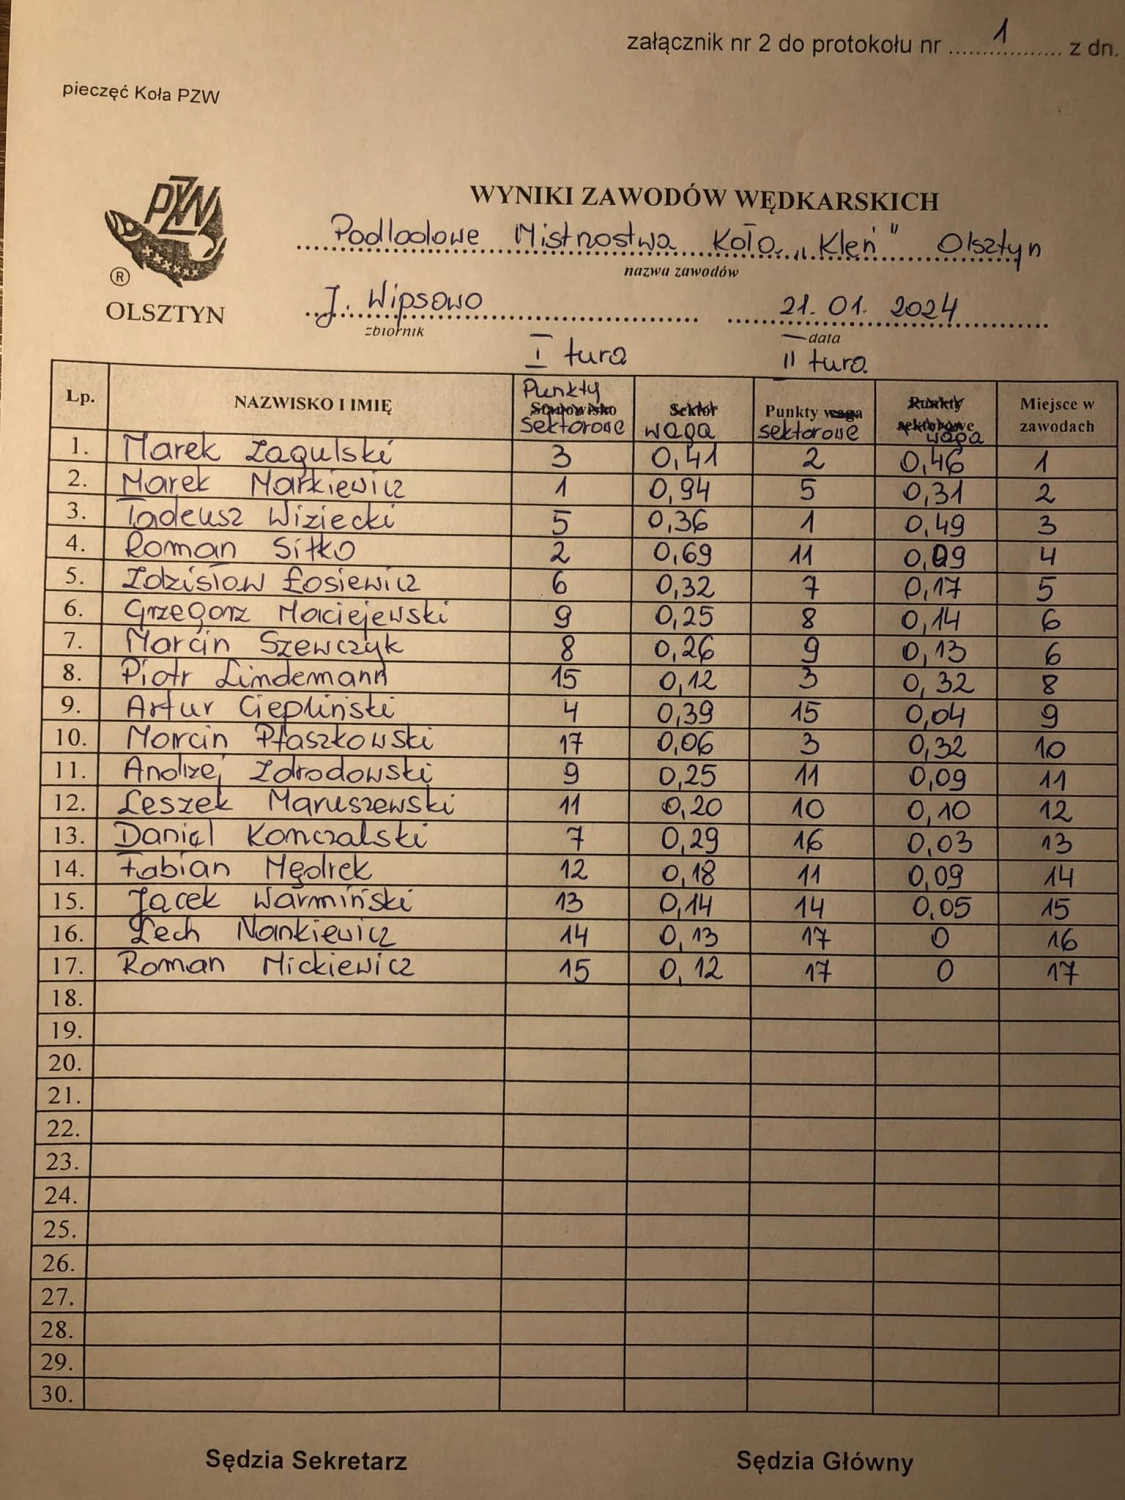 załącznik nr 2 do protokołu nr ....1.... z dn.
pieczęć Koła PZW
PZW
®
OLSZTYN
WYNIKI ZAWODÓW WĘDKARSKICH
Podlodowe Mistrzostwa Koło „Kleń" Olsztyn
nazwa zawodów
J. Wipsowo 21.01.2024
zbiornik data
I tura II tura
Lp. NAZWISKO I IMIĘ Punkty sektorowe waga Punkty sektorowe waga Miejsce w zawodach
1. Marek Zagulski 3 0,41 2 0,46 1
2. Marek Markiewicz 1 0,94 5 0,31 2
3. Tadeusz Wiziecki 5 0,36 1 0,49 3
4. Roman Sitko 2 0,69 11 0,09 4
5. Zdzisław Łosiewicz 6 0,32 7 0,17 5
6. Grzegorz Maciejewski 9 0,25 8 0,14 6
7. Marcin Szewczyk 8 0,26 9 0,13 6
8. Piotr Lindemann 15 0,12 3 0,32 8
9. Artur Ciepliński 4 0,39 15 0,04 9
10. Marcin Ptaszkowski 17 0,06 3 0,32 10
11. Andrzej Zdrodowski 9 0,25 11 0,09 11
12. Leszek Maruszewski 11 0,20 10 0,10 12
13. Daniel Komczalski 7 0,29 16 0,03 13
14. Fabian Mędrek 12 0,18 11 0,09 14
15. Jacek Warmiński 13 0,14 14 0,05 15
16. Lech Nankiewicz 14 0,13 17 0 16
17. Roman Mickiewicz 15 0,12 17 0 17
18.
19.
20.
21.
22.
23.
24.
25.
26.
27.
28.
29.
30.
Sędzia Sekretarz Sędzia Główny